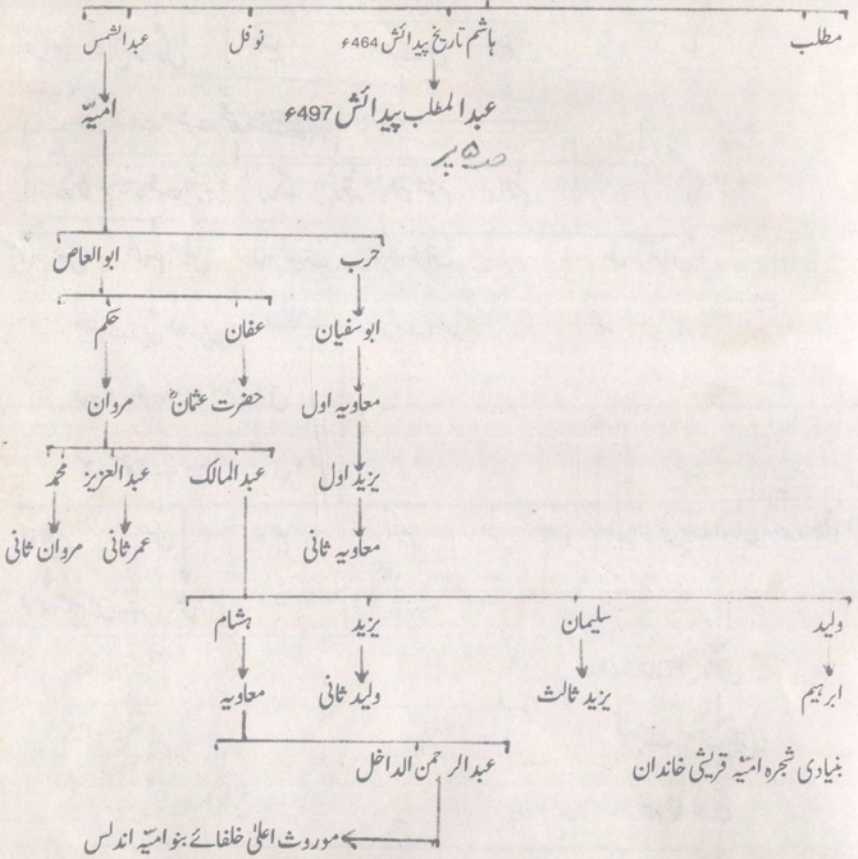 مطلب ہاشم تاریخ پیدائش 464ء نوفل عبدالشمس
عبدالمطلب پیدائش 497ء امیہّ
حرب ابوالعاص
ابوسفیان عفان حکم
معاویہ اول حضرت عثمانؓ مروان
یزید اول عبدالمالک عبدالعزیز محمد
معاویہ ثانی عمر ثانی مروان ثانی
ولید سلیمان یزید ہشام
ابرہیم یزید ثالث ولید ثانی معاویہ
بنیادی شجرہ امیہّ قریشی خاندان عبدالرحمن الداخل
موروث اعلیٰ خلفائے بنو امیہّ اندلس